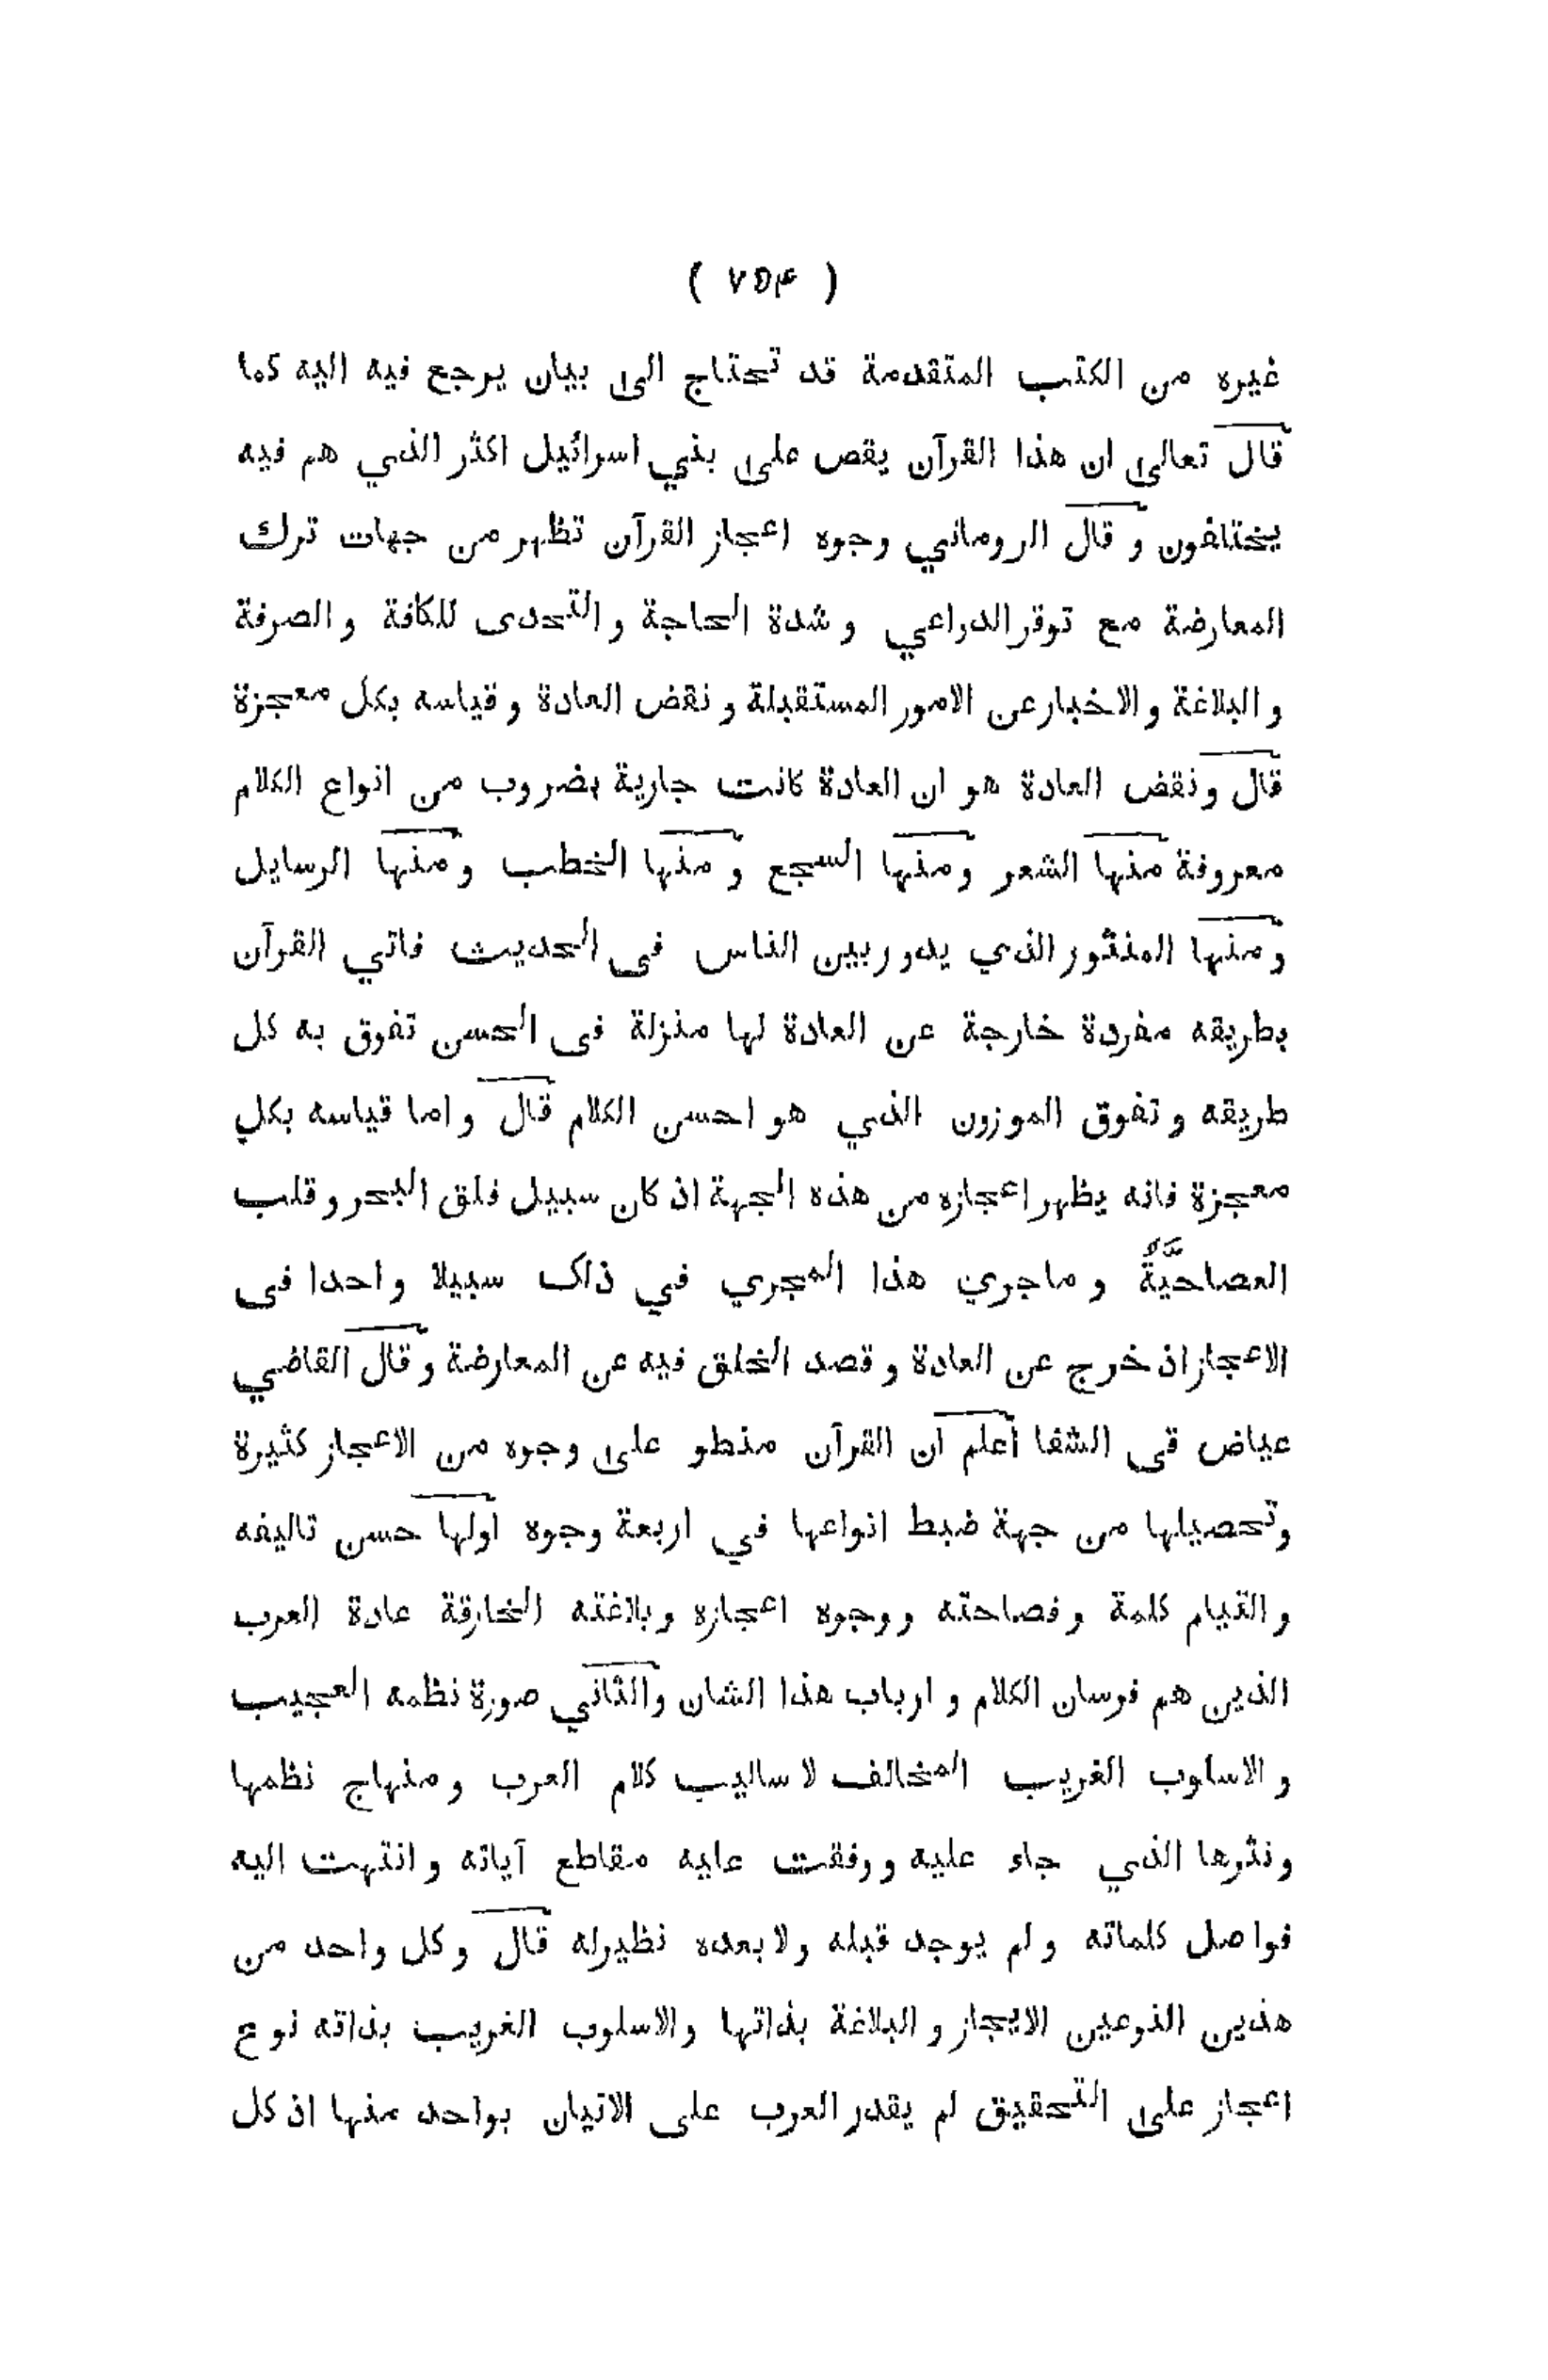 ( ٧٥۴ )
غيره من الكتب المتقدمة قد تحتاج الى بيان يرجع فيه اليه كما
قال تعالى ان هذا القرآن يقص على بني اسرائيل اكثر الذي هم فيه
يختلفون و قال الروماني وجوه اعجاز القرآن تظهر من جهات ترك
المعارضة مع توقر الدراعي و شدة الحاجة و التحدى للكافة و الصرفة
و البلاغة و الاخبار عن الامور المستقبلة و نقض العادة و قياسه بكل معجزة
قال و نقض العادة هو ان العادة كانت جارية بضروب من انواع الكلام
معروفة منها الشعر و منها السجع و منها الخطب و منها الرسايل
و منها المنثور الذي يدور بين الناس فى الحديث فاتي القرآن
بطريقه مفردة خارجة عن العادة لها منزلة فى الحسن تفوق به كل
طريقه و تفوق الموزون الذي هو احسن الكلام قال و اما قياسه بكل
معجزة فانه يظهر اعجازه من هذه الجهة اذ كان سبيل فلق البحر و قلب
العصا حيّةً و ما جري هذا المجري في ذلك سبيلا واحدا فى
الاعجاز اذ خرج عن العادة و قصد الخلق فيه عن المعارضة و قال القاضي
عياض قى الشفا أعلم ان القرآن منطو على وجوه من الاعجاز كثيرة
وتحصيلها من جهة ضبط انواعها في اربعة وجوه اولها حسن تاليفه
و التيام كلمة و فصاحته و وجوه اعجازه و بلاغته الخارقة عادة العرب
الذين هم فرسان الكلام و ارباب هذا الشان والثاني صورة نظمه العجيب
و الاسلوب الغريب المخالف لا ساليب كلام العرب و منهاج نظمها
و نثرها الذي جاء عليه و رفقت عليه مقاطع آياته و انتهت اليه
فواصل كلماته و لم يوجد قبله و لا بعده نظيرله قال و كل واحد من
هذين النوعين الايجاز و البلاغة بذاتها والاسلوب الغريب بذاته نوع
اعجاز على التحقيق لم يقدر العرب على الاتيان بواحد منها اذ كل